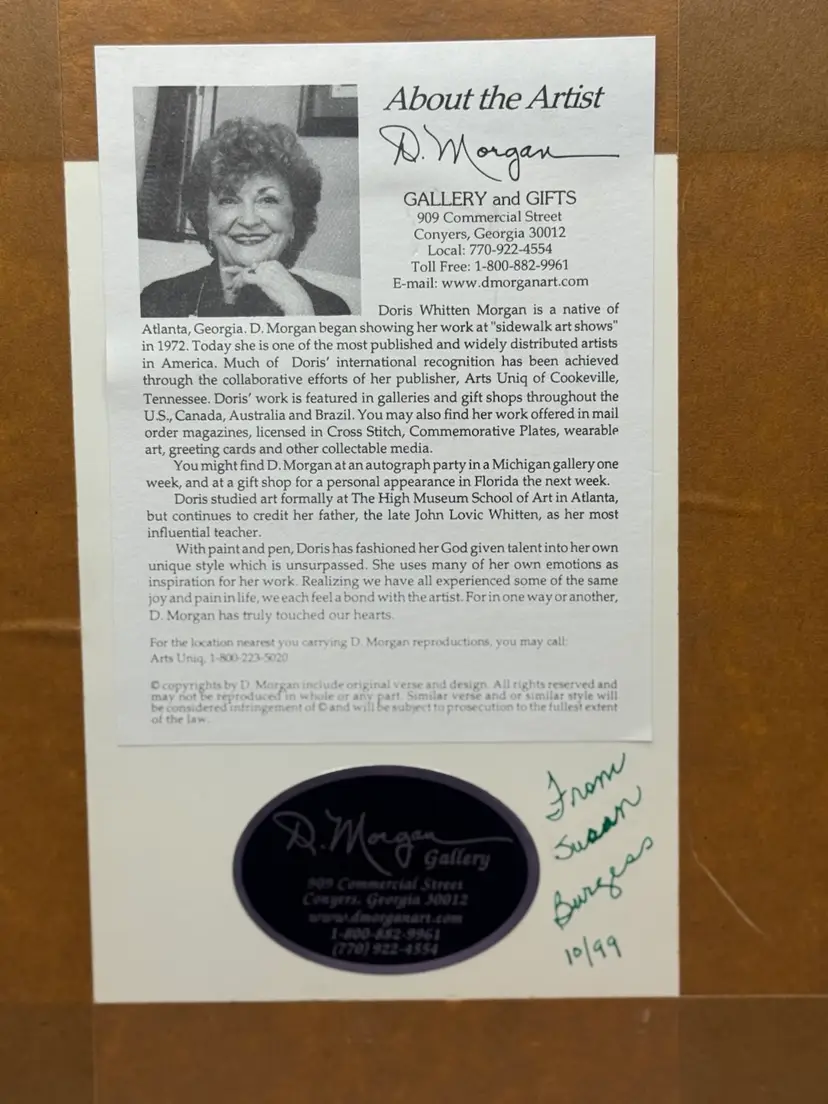 About the Artist
D. Morgan
GALLERY and GIFTS
909 Commercial Street
Conyers, Georgia 30012
Local: 770-922-4554
Toll Free: 1-800-882-9961
E-mail: www.dmorganart.com
Doris Whitten Morgan is a native of
Atlanta, Georgia. D. Morgan began showing her work at "sidewalk art shows"
in 1972. Today she is one of the most published and widely distributed artists
in America. Much of Doris' international recognition has been achieved
through the collaborative efforts of her publisher, Arts Uniq of Cookeville,
Tennessee. Doris' work is featured in galleries and gift shops throughout the
U.S., Canada, Australia and Brazil. You may also find her work offered in mail
order magazines, licensed in Cross Stitch, Commemorative Plates, wearable
art, greeting cards and other collectable media.
You might find D. Morgan at an autograph party in a Michigan gallery one
week, and at a gift shop for a personal appearance in Florida the next week.
Doris studied art formally at The High Museum School of Art in Atlanta,
but continues to credit her father, the late John Lovic Whitten, as her most
influential teacher.
With paint and pen, Doris has fashioned her God given talent into her own
unique style which is unsurpassed. She uses many of her own emotions as
inspiration for her work. Realizing we have all experienced some of the same
joy and pain in life, we each feel a bond with the artist. For in one way or another,
D. Morgan has truly touched our hearts.
For the location nearest you carrying D. Morgan reproductions, you may call:
Arts Uniq, 1-800-223-5020
© copyrights by D. Morgan include original verse and design. All rights reserved and
may not be reproduced in whole or any part. Similar verse and or similar style will
be considered infringement of © and will be subject to prosecution to the fullest extent
of the law.
D. Morgan
Gallery
909 Commercial Street
Conyers, Georgia 30012
www.dmorganart.com
1-800-882-9961
(770) 922-4554
From
Susan
Burgess
10/99